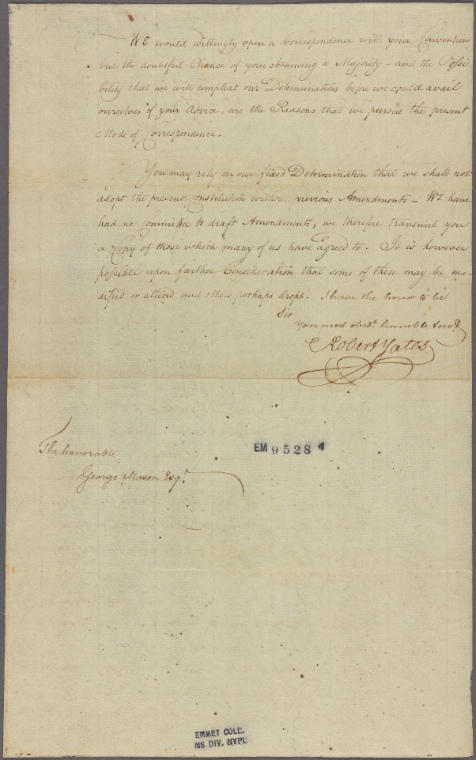 We would willingly open a Correspondence with your Convention
but the doubtful Chance of your obtaining a Majority – and the Possi
bility that we will compleat our Determinations before we could avail
ourselves of your Advice, are the Reasons that we pursue the present
Mode of Correspondence.
You may rely on our fixed Determination that we shall not
adopt the present Constitution without previous Amendments – We have
had no Committee to draft Amendments, we therefore transmit you
a Copy of those which many of us have agreed to. It is however
possible upon farther Consideration that some of these may be mo-
difed or altered and others perhaps dropt. I have the honor to be
Sir
Your most obed.t humble Serv.t
Robert Yates
The honorable
George Mason Esq.r
EM 9528 4
EMMET COLL.
MS DIV. NYPL